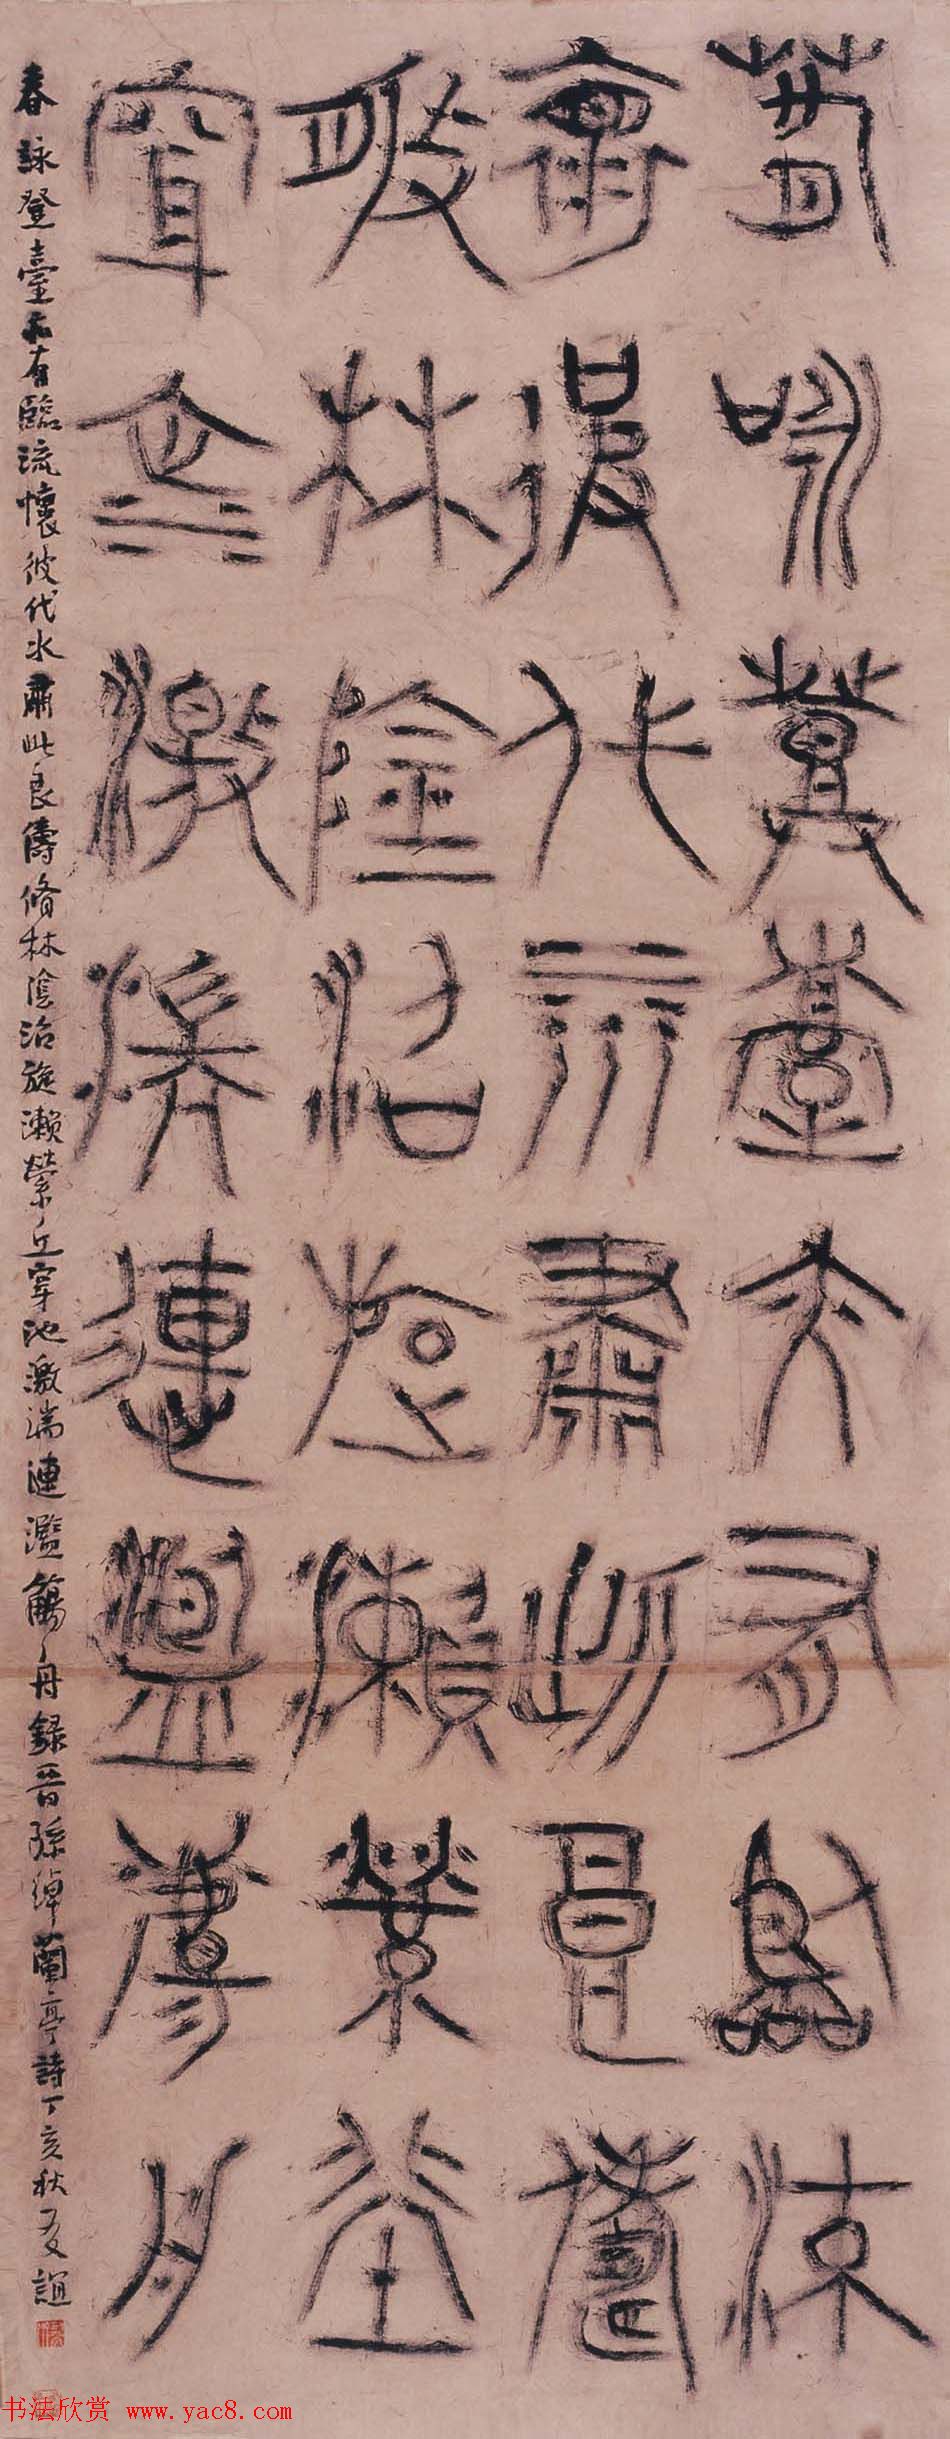 春詠登臺亦有臨流
懷彼代水肅此良儔
脩林陰沼旋瀨縈丘
穿池激湍連濫觴舟
春詠登臺亦有臨流懷彼代水肅此良儔脩林陰沼旋瀨縈丘穿池激湍漣濫觴舟錄晉孫綽蘭亭詩丁亥秋誼
书法欣赏 www.yac8.com